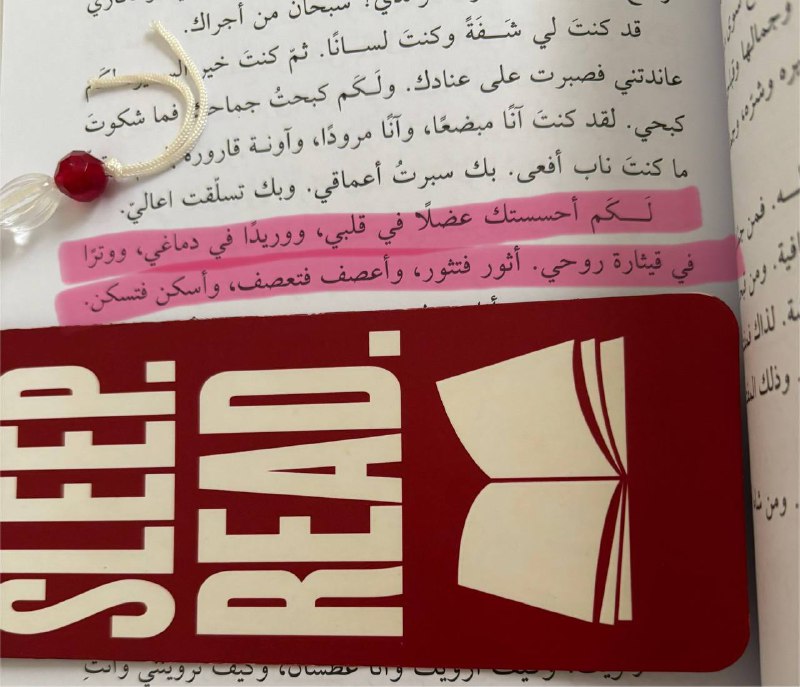 سبحان من أجراك.
قد كنتَ لي شَـفَةً وكنتَ لسـانًا. ثمّ كنتَ خير
عاندتني فصبرت على عنادك. ولَـكَم كبحتُ جماحك فما شكوتَ
كبحي. لقد كنتَ آنًا مبضعًا، وآنًا مرودًا، وآونـة قارورة
ما كنتَ ناب أفعى. بك سبرتُ أعماقي. وبك تسلّقت اعاليّ.
لَـــكَم أحسستك عضلًا في قلبي، ووريدًا في دماغي، ووترًا
في قيثارة روحي. أثور فتثور، وأعصف فتعصف، وأسكن فتسكن.
SLEEP.
READ.
وأنا عطشان، وكيف ترويني وأنتِ
وجمالها
وشرّه،
فمن
ومن
لذاك
وذلك
ومن